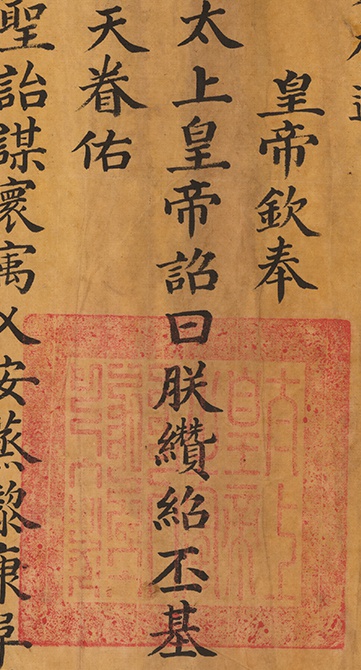 皇帝欽奉
太上皇帝詔曰朕纘紹丕基
天眷佑
聖詒謀寰㝢乂安蒸黎康阜